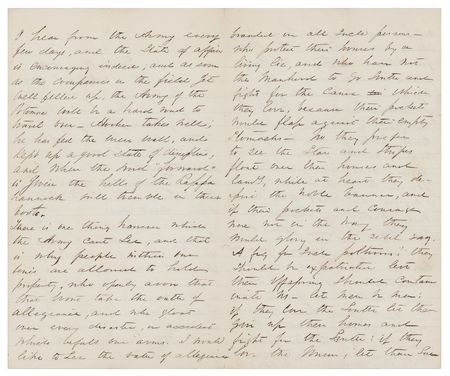 I hear from the Army every
few days, and the State of affairs
is encouraging indeed, and as soon
as the companies in the field, get
well filled up, the Army of the
Potomac will be a hard road to
travel over – Hooker takes well,
he has fed the men well, and
kept up a good state of discipline,
and when the word "forward"
is given the hills of the Rappa
hannock will tremble in their
boots.
There is one thing however which
the Army Cant See, and that
is why people within our
lines are allowed to hold
property, who openly avow that
that wont take the oath of
allegiance, and who gloat
over every disaster, or accident
which befalls our arms. I would
like to See the oath of allegiance
branded on all such persons
who protect their houses by a
living lie, and who have not
the Manhood to go South and
fight for the Cause which
they love, because their pockets
would flap against their empty
Stomachs – No they prefer
to see the Stars and Stripes
float over their houses and
lands, while at heart they de-
spise the noble banner, and
if their pockets and courage
were not in the way they
would glory in the rebel rag
A fig for such poltroons; they
Should be expatriated lest
their offspring Should contam
inate us – let men be men:
if they love the South let them
give up their homes and
fight for the South: if they
love the Union, let them